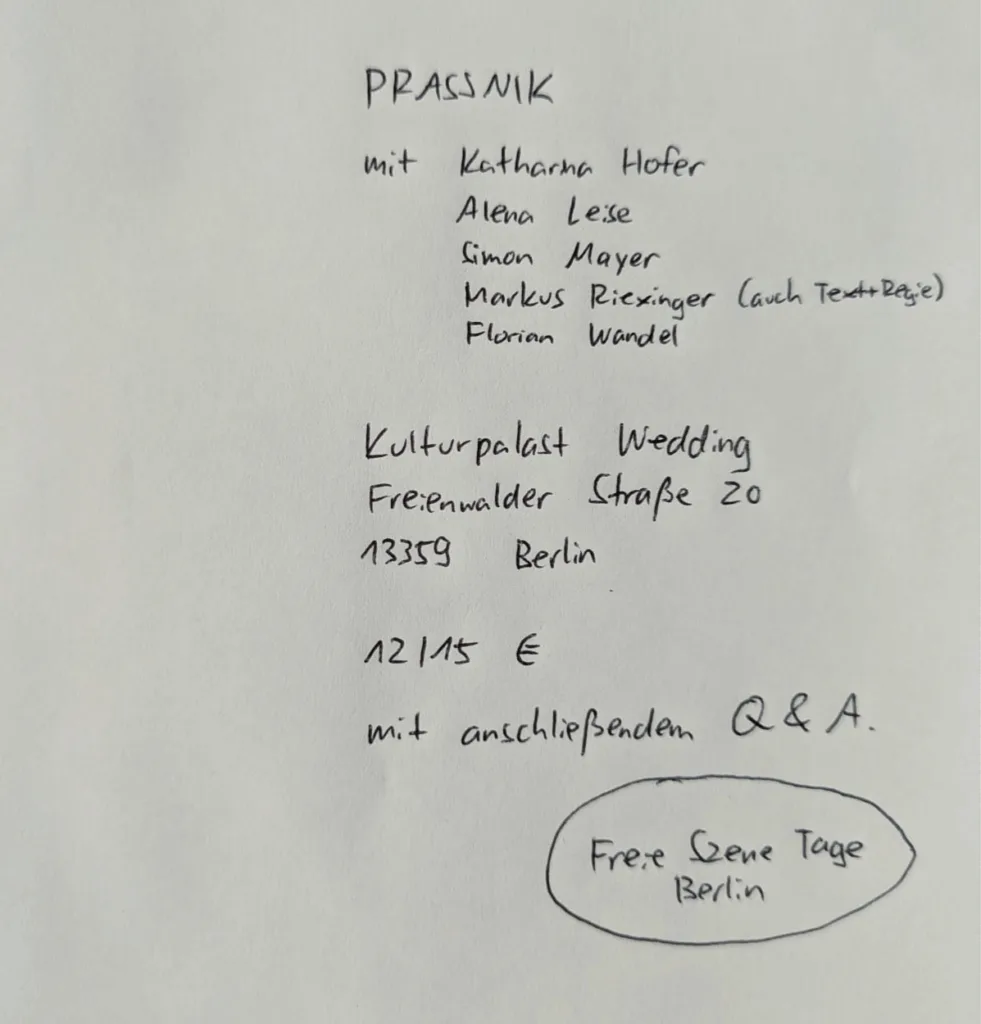 PRASSNIK
mit Katharina Hofer
Alena Leise
Simon Mayer
Markus Riexinger (auch Text+Regie)
Florian Wandel
Kulturpalast Wedding
Freienwalder Straße 20
13359 Berlin
12/15 €
mit anschließendem Q & A.
Freie Szene Tage
Berlin